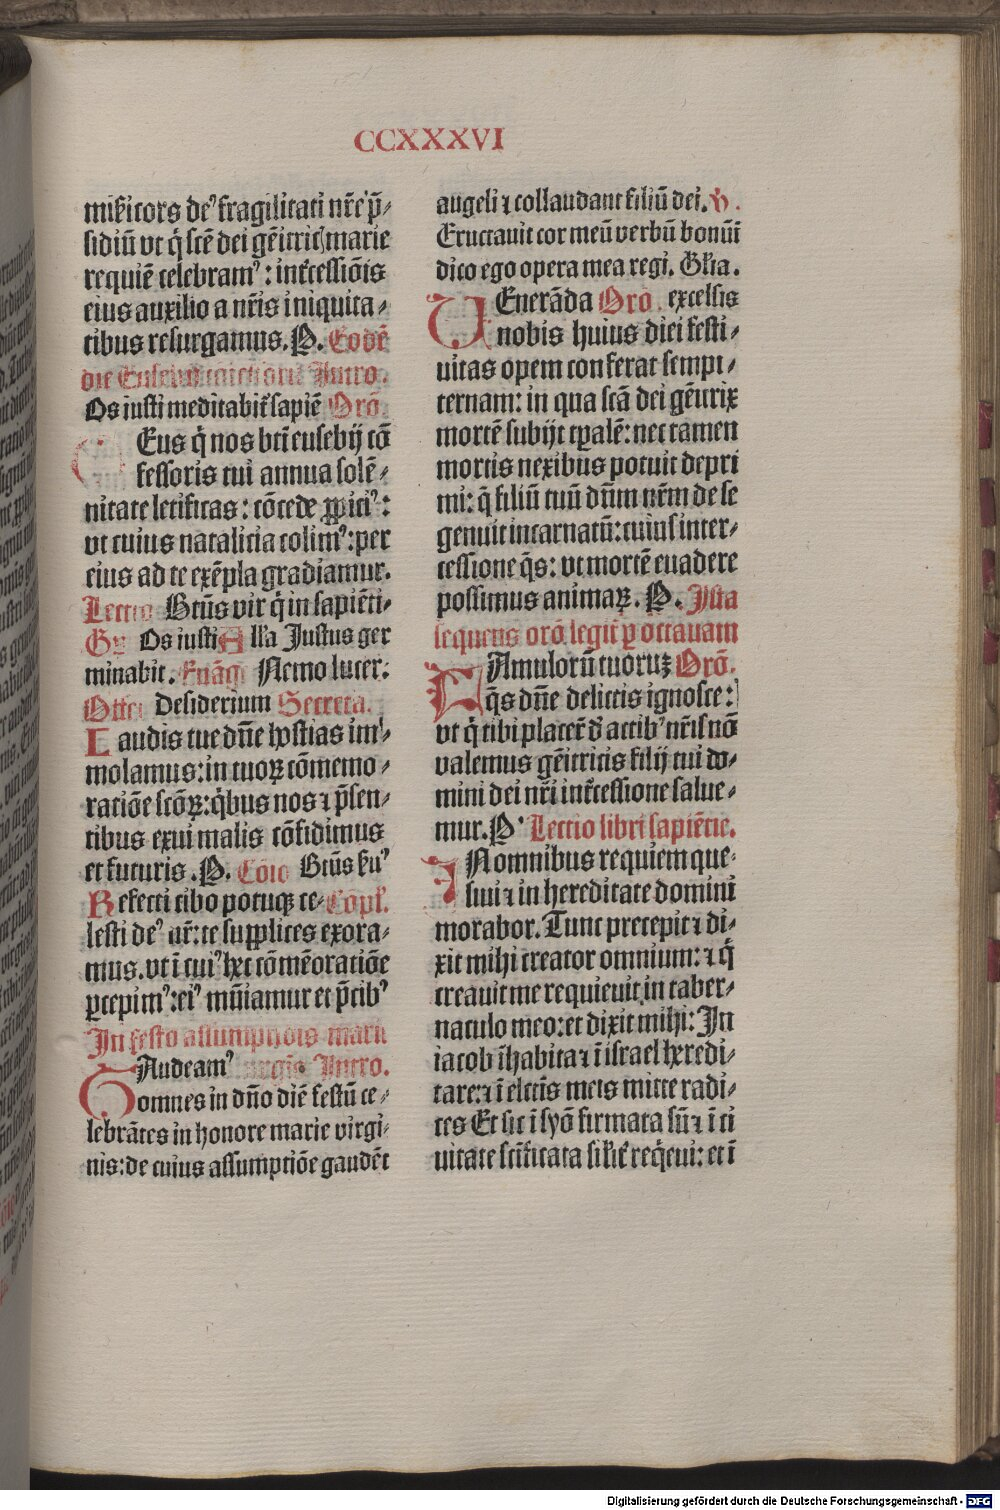 CCXXXVI
miẜicors deꝰ fragilitati nr̃e p̃⸗
sidiũ vt q̃ scẽ dei gẽitricꝭ marie
requiẽ celebramꝰ: int̃cessiõis
eius auxilio a nr̃is iniquita⸗
tibus resurgamus. P. Eodẽ
die Eusebij Intro.
Os iusti meditabit̃ sapiẽ Orõ
Eus q̃ nos bti eusebij cõ
fessoris tui annua solẽ⸗
nitate letificas: cõcede ꝓpiciꝰ:
vt cuius natalicia colimꝰ: per
eius ad te exẽpla gradiamur.
Lectio Btũs vir q̃ in sapiẽti⸗
Gr̃ Os iusti Alľa Justus ger
minabit. Euãg̃ Nemo lucer:
Offei Desiderium Secreta.
Laudis tue dñe hostias im⸗
molamus: in tuoꝝ cõmemo⸗
ratiõe scõꝝ: q̃bus nos ⁊ p̃sen⸗
tibus exui malis cõfidimus
et futuris. P. Cõio Btũs ẜuꝰ
Refecti cibo potuqꝫ ce⸗ Cõpl̃.
lesti deꝰ nr̃: te supplices exora⸗
mus. vt ĩ cuiꝰ hec cõmẽoratiõe
ꝑcepimꝰ: eiꝰ muniamur et p̃cibꝰ
In festo assumpt̃ois marie
Audeamꝰ virgĩs Intro.
omnes in dño diẽ festũ ce⸗
lebrãtes in honore marie virgi⸗
nis: de cuius assumptiõe gaudẽt
angeli ⁊ collaudant filiũ dei. v̾.
Eructauit cor meũ verbũ bonũ
dico ego opera mea regi. Gľia.
VEnerãda Orõ. excelsis
nobis huius diei festi⸗
uitas opem conferat sempi⸗
ternam: in qua scã dei gẽitrix
mortẽ subijt tp̃alẽ: nec tamen
mortis nexibus potuit depri
mi: q̃ filiũ tuũ dñm nr̃m de se
genuit incarnatũ: cuius inter⸗
cessione q̃s: vt mortẽ euadere
possimus animaꝝ. P. Ista
sequens orõ legit̃ ꝑ octauam
FAmulorũ tuoruꝫ Orõ.
q̃s dñe delictis ignosce:
vt q̃ tibi placer̃ d̾ actibꝰ nr̃is nõ
valemus gẽitricis filij tui do⸗
mini dei nr̃i int̃cessione salue⸗
mur. P. Lectio libri sapiẽtie.
IN omnibus requiem que⸗
siui ⁊ in hereditate domini
morabor. Tunc precepit ⁊ di⸗
xit mihi creator omnium: ⁊ q̃
creauit me requieuit in taber⸗
naculo meo: et dixit mihi: In
iacob ĩhabita ⁊ ĩ israel heredi⸗
tare: ⁊ ĩ elc̃tis meis mitte radi⸗
ces Et sic ĩ syõ firmata sũ ⁊ ĩ ci
uitate sc̃ificata siľit̃ req̃eui: et ĩ
Digitalisierung gefördert durch die Deutsche Forschungsgemeinschaft - DFG